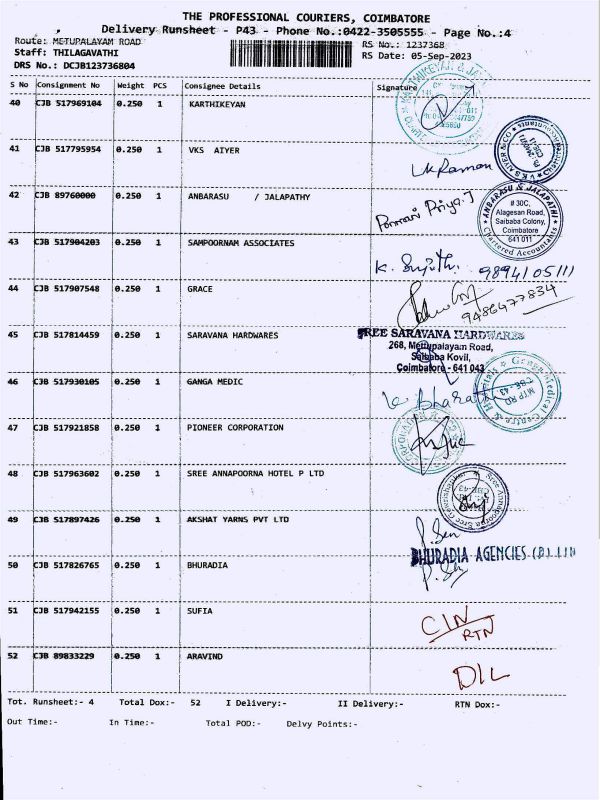 THE PROFESSIONAL COURIERS, COIMBATORE
Delivery Runsheet - P43 - Phone No.:0422-3505555 - Page No.:4
Route: METUPALAYAM ROAD
RS No.: 1237368
Staff: THILAGAVATHI
RS Date: 05-Sep-2023
DRS No.: DCJB123736804
S No Consignment No Weight PCS Consignee Details Signature
40 CJB 517969104 0.250 1 KARTHIKEYAN
41 CJB 517795954 0.250 1 VKS AIYER
42 CJB 89760000 0.250 1 ANBARASU / JALAPATHY
ANBARASU & JALAPATHI
# 30C,
Alagesan Road,
Saibaba Colony,
Coimbatore
641 011
Chartered Accountants
43 CJB 517904203 0.250 1 SAMPOORNAM ASSOCIATES
9894105111
44 CJB 517907548 0.250 1 GRACE
9486477834
45 CJB 517814459 0.250 1 SARAVANA HARDWARES
SREE SARAVANA HARDWARES
268, Mettupalayam Road,
Saibaba Kovil,
Coimbatore - 641 043
46 CJB 517930105 0.250 1 GANGA MEDIC
K Bharathi
47 CJB 517921858 0.250 1 PIONEER CORPORATION
48 CJB 517963602 0.250 1 SREE ANNAPOORNA HOTEL P LTD
49 CJB 517897426 0.250 1 AKSHAT YARNS PVT LTD
P. Sen
BHURADIA AGENCIES (P) LTD
50 CJB 517826765 0.250 1 BHURADIA
51 CJB 517942155 0.250 1 SUFIA
CIN
RTN
52 CJB 89833229 0.250 1 ARAVIND
D/L
Tot. Runsheet:- 4 Total Dox:- 52 I Delivery:- II Delivery:- RTN Dox:-
Out Time:- In Time:- Total POD:- Delvy Points:-